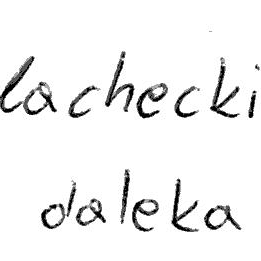 lachecki
daleka